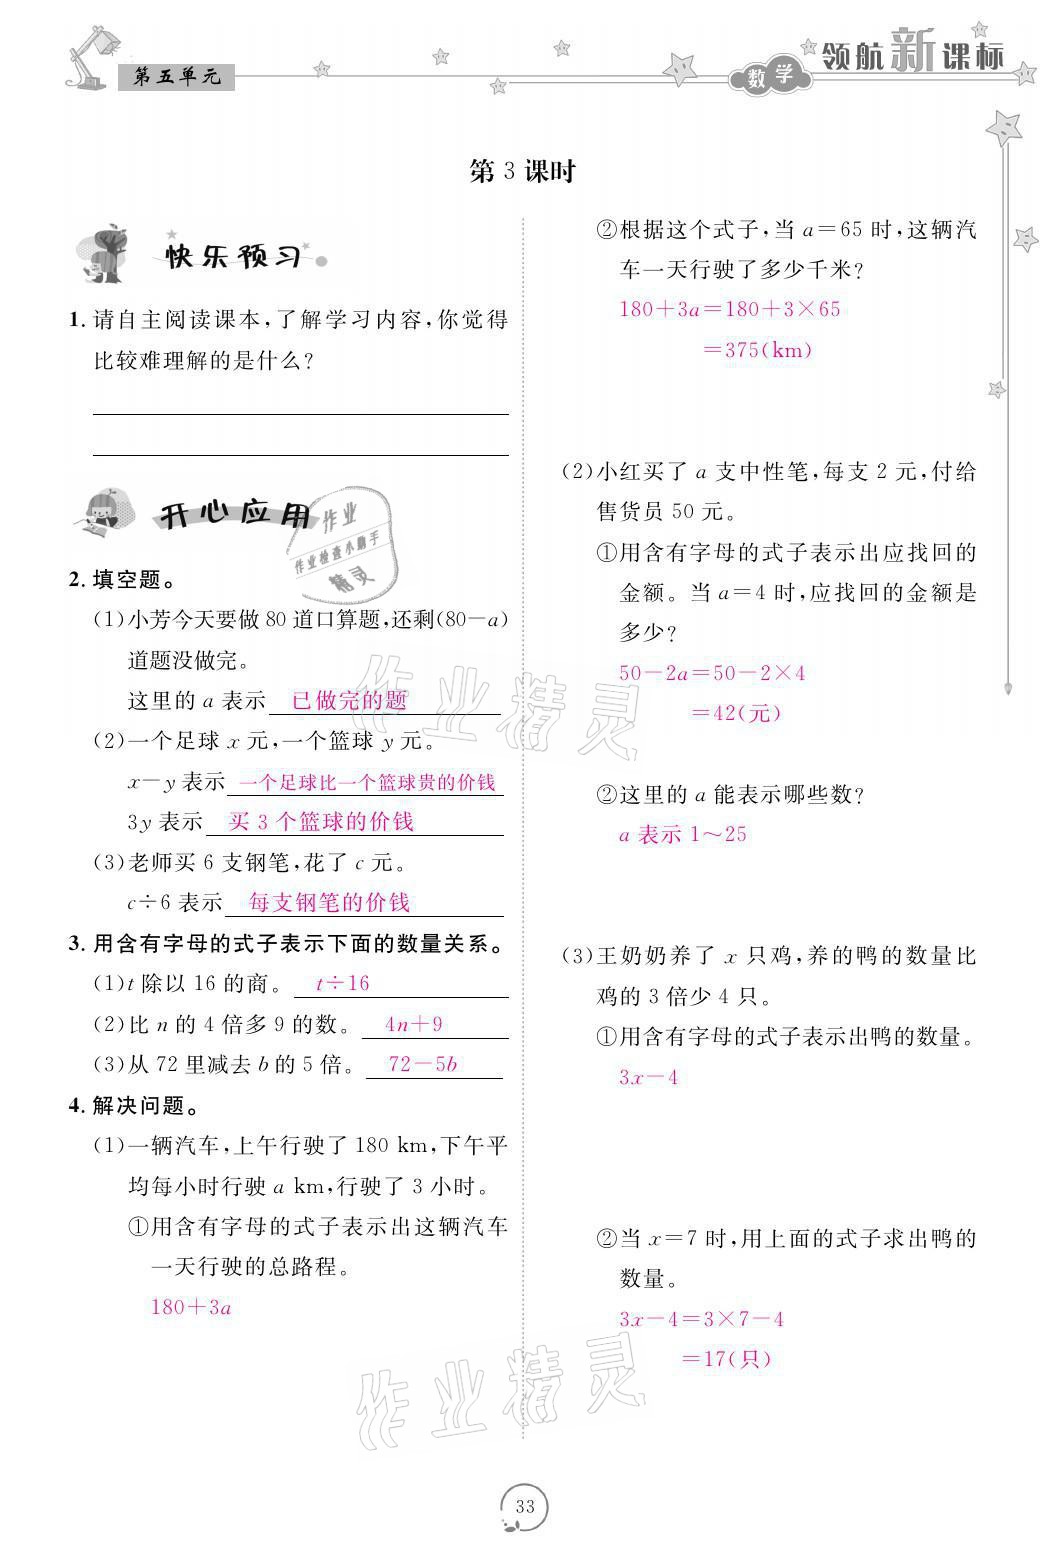 第五单元
数学
领航新课标
第 3 课时
快乐预习
1. 请自主阅读课本,了解学习内容,你觉得
比较难理解的是什么?
开心应用
2. 填空题。
(1)小芳今天要做 80 道口算题,还剩(80－a)
道题没做完。
这里的 a 表示 已做完的题
(2)一个足球 x 元,一个篮球 y 元。
x－y 表示 一个足球比一个篮球贵的价钱
3y 表示 买 3 个篮球的价钱
(3)老师买 6 支钢笔,花了 c 元。
c÷6 表示 每支钢笔的价钱
3. 用含有字母的式子表示下面的数量关系。
(1)t 除以 16 的商。 t÷16
(2)比 n 的 4 倍多 9 的数。 4n＋9
(3)从 72 里减去 b 的 5 倍。 72－5b
4. 解决问题。
(1)一辆汽车,上午行驶了 180 km,下午平
均每小时行驶 a km,行驶了 3 小时。
①用含有字母的式子表示出这辆汽车
一天行驶的总路程。
180＋3a
②根据这个式子,当 a＝65 时,这辆汽
车一天行驶了多少千米?
180＋3a＝180＋3×65
＝375(km)
(2)小红买了 a 支中性笔,每支 2 元,付给
售货员 50 元。
①用含有字母的式子表示出应找回的
金额。当 a＝4 时,应找回的金额是
多少?
50－2a＝50－2×4
＝42(元)
②这里的 a 能表示哪些数?
a 表示 1～25
(3)王奶奶养了 x 只鸡,养的鸭的数量比
鸡的 3 倍少 4 只。
①用含有字母的式子表示出鸭的数量。
3x－4
②当 x＝7 时,用上面的式子求出鸭的
数量。
3x－4＝3×7－4
＝17(只)
作业
作业检查小助手
精灵
作业精灵
作业精灵
33